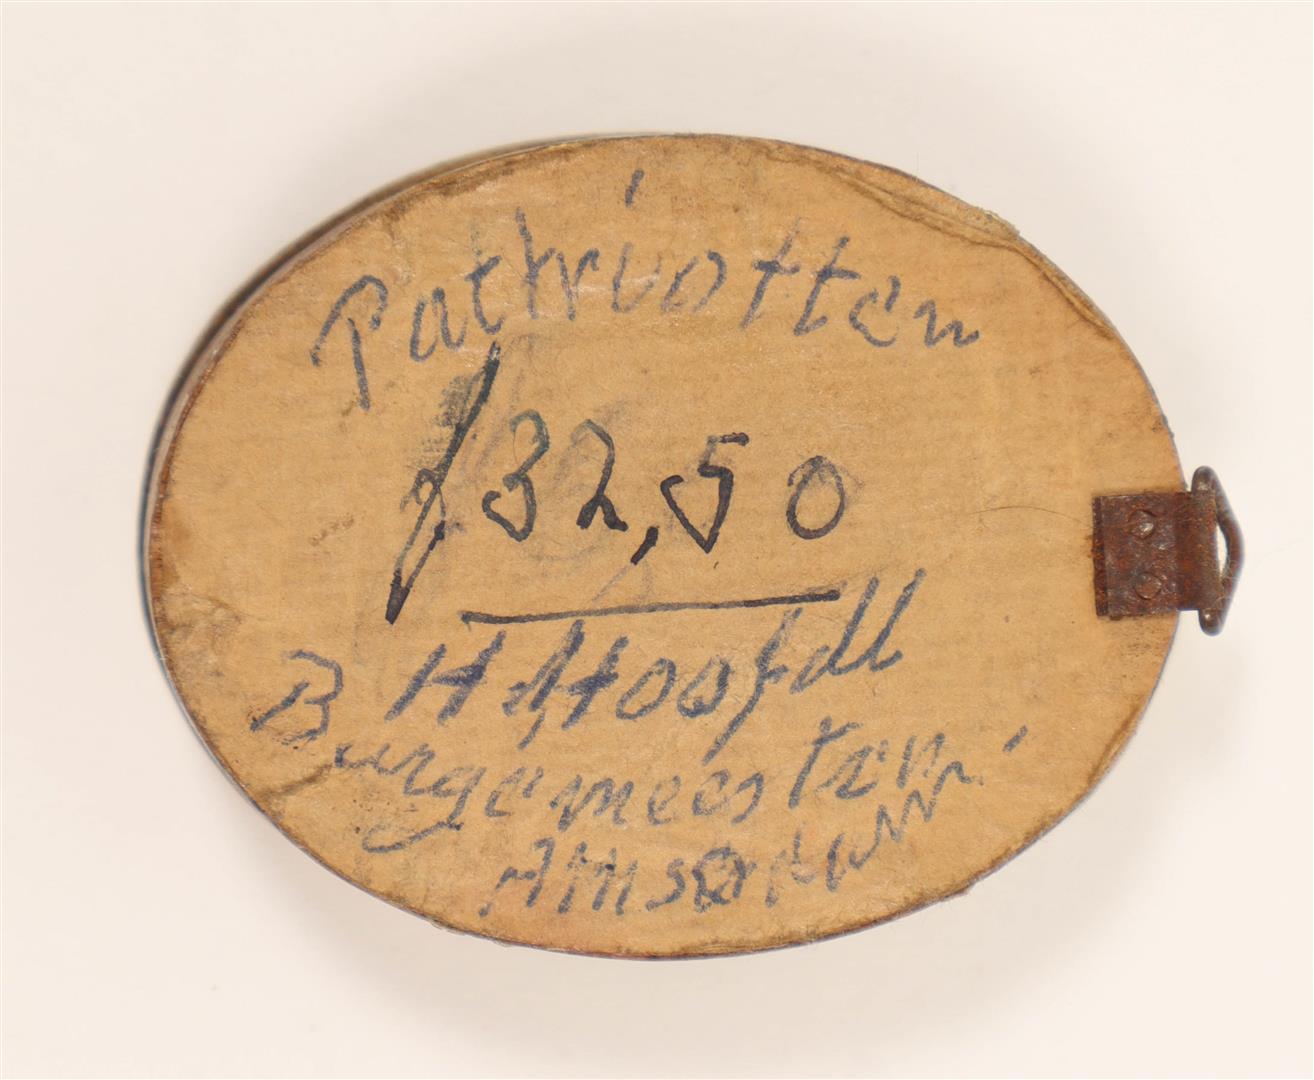 Pathriotten
ƒ 32,50
H Hooft
Burgemeester
Amsterdam